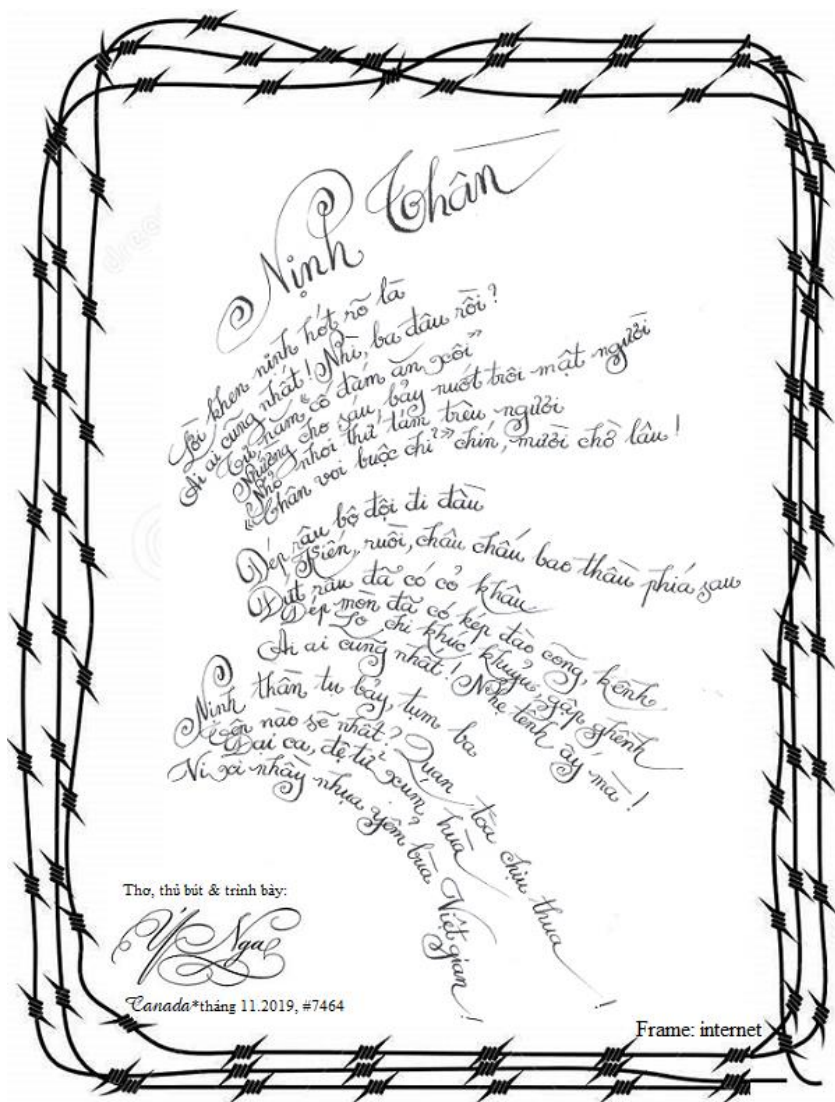 Nịnh Thần
Lời khen nịnh hót rõ là
Ai ai cũng nhất! Nhì, ba đâu rồi?
Tứ, năm "cố đấm ăn xôi"
Nhường cho sáu bảy nuốt trôi mật người
Nhỏ nhoi thứ tám trêu ngươi
"Chân voi buộc chỉ" chín, mười chờ lâu!
Dép râu bộ đội đi đầu
Kiến, ruồi, châu chấu bao thầu phía sau
Đứt râu đã có cỏ khâu
Dép mòn đã có kép đào cõng, kênh
Lo chi khúc khuỷu, gập ghềnh
Ai ai cũng nhất! Nhẹ tênh ấy mà!
Nịnh thần tụ bảy, tụm ba
Tên nào sẽ nhất? Quan tòa chịu thua!
Đại ca, đệ tử xum, hùa
Ni xi nhầy nhụa yểm bùa Việt gian!
Thơ, thủ bút & trình bày:
Ý Nga
Canada*tháng 11.2019, #7464
Frame: internet